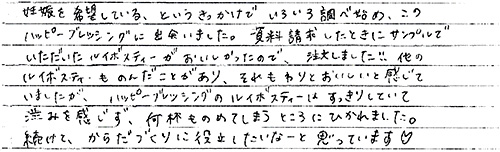 妊娠を希望している、というきっかけで いろいろ調べ始め、この
ハッピーブレッシングに出会いました。資料請求したときにサンプルで
いただいたルイボスティーがおいしかったので、注文しました!! 他の
ルイボスティーものんだことがあり、それもわりとおいしいと感じて
いましたが、ハッピーブレッシングのルイボスティーはすっきりしていて
渋みを感じず、何杯ものめてしまうところにひかれました。
続けて、からだづくりに役立したいなーと思っています♡